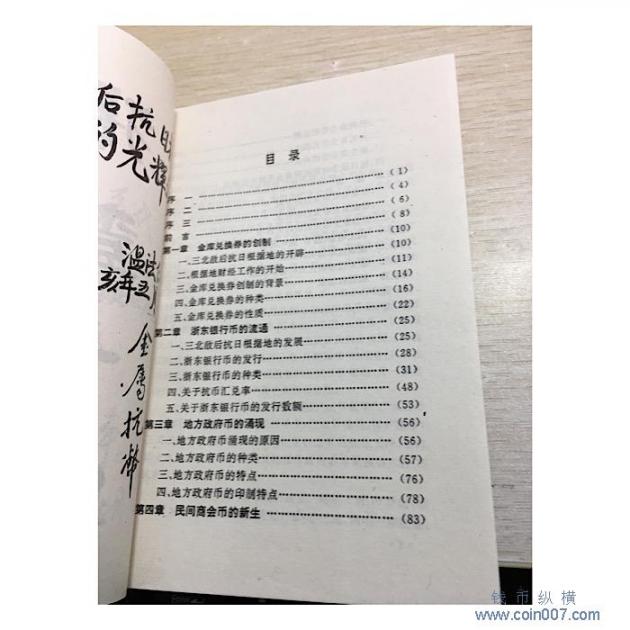 后抗日
的光辉
温法
亥年五
金属抗币
目录
序一 (1)
序二 (4)
序三 (6)
前言 (8)
第一章 金库兑换券的创制 (10)
一、三北敌后抗日根据地的开辟 (10)
二、根据地财经工作的开始 (11)
三、金库兑换券创制的背景 (14)
四、金库兑换券的种类 (16)
五、金库兑换券的性质 (22)
第二章 浙东银行币的流通 (25)
一、三北敌后抗日根据地的发展 (25)
二、浙东银行币的发行 (28)
三、浙东银行币的种类 (31)
四、关于抗币汇兑率 (48)
五、关于浙东银行币的发行数额 (53)
第三章 地方政府币的涌现 (56)
一、地方政府币涌现的原因 (56)
二、地方政府币的种类 (57)
三、地方政府币的特点 (76)
四、地方政府币的印制特点 (78)
第四章 民间商会币的新生 (83)
钱币纵横
www.coin007.com